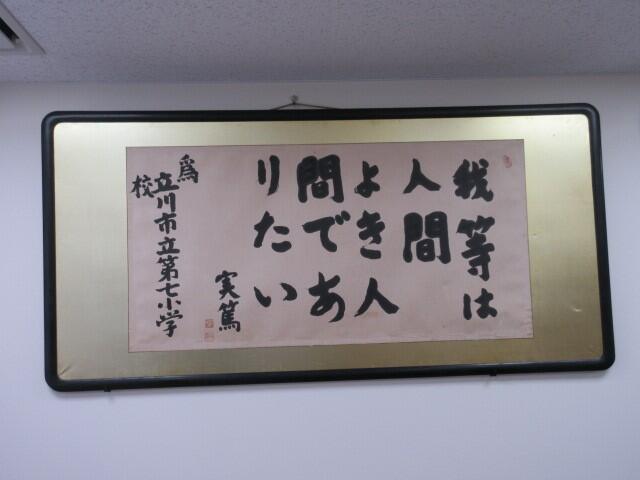 我等は
人間
よき人
間であ
りたい
実篤
為
立川市立第七小学
校